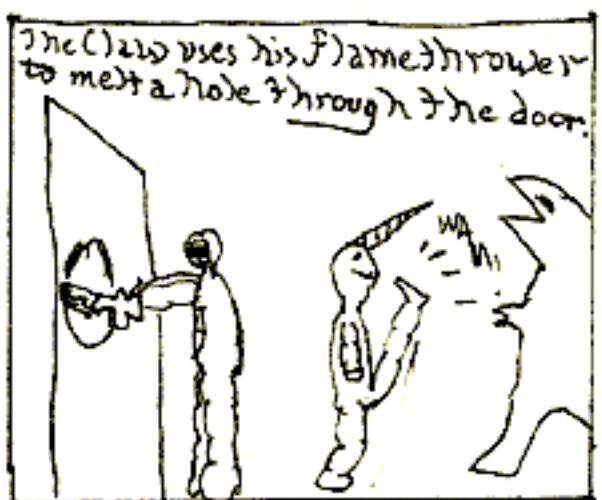 The Claw uses his flamethrower
to melt a hole through the door.
WAA